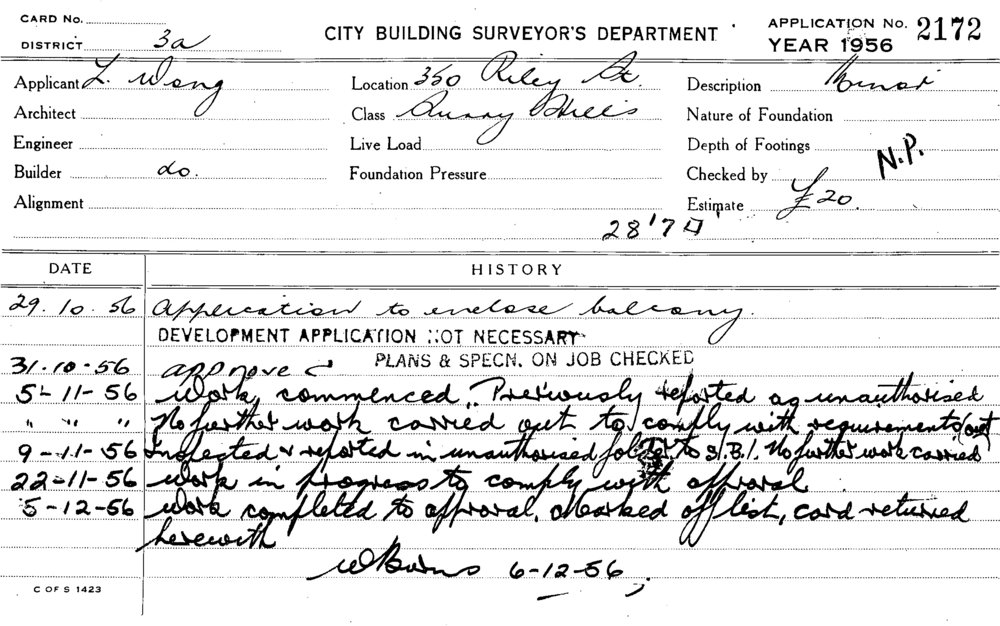 CARD No.
DISTRICT 3a
CITY BUILDING SURVEYOR'S DEPARTMENT
APPLICATION No. 2172
YEAR 1956
Applicant L. Wong
Location 350 Riley St.
Description Minor
Architect
Class Surry Hills
Nature of Foundation
Engineer
Live Load
Depth of Footings
Builder do.
Foundation Pressure
Checked by N.P.
Alignment
Estimate £20.
28'7
DATE HISTORY
29.10.56 Application to enclose balcony.
DEVELOPMENT APPLICATION NOT NECESSARY
PLANS & SPECN. ON JOB CHECKED
31.10.56 approved
5-11-56 Work commenced. Previously reported as unauthorised
" " " No further work carried out to comply with requirements
9-11-56 Inspected & reported in unauthorised to S.B.I. No further work carried out
22-11-56 Work in progress to comply with approval
5-12-56 Work completed to approval. Marked off list, card returned
herewith
W Burns 6-12-56
C OF S 1423